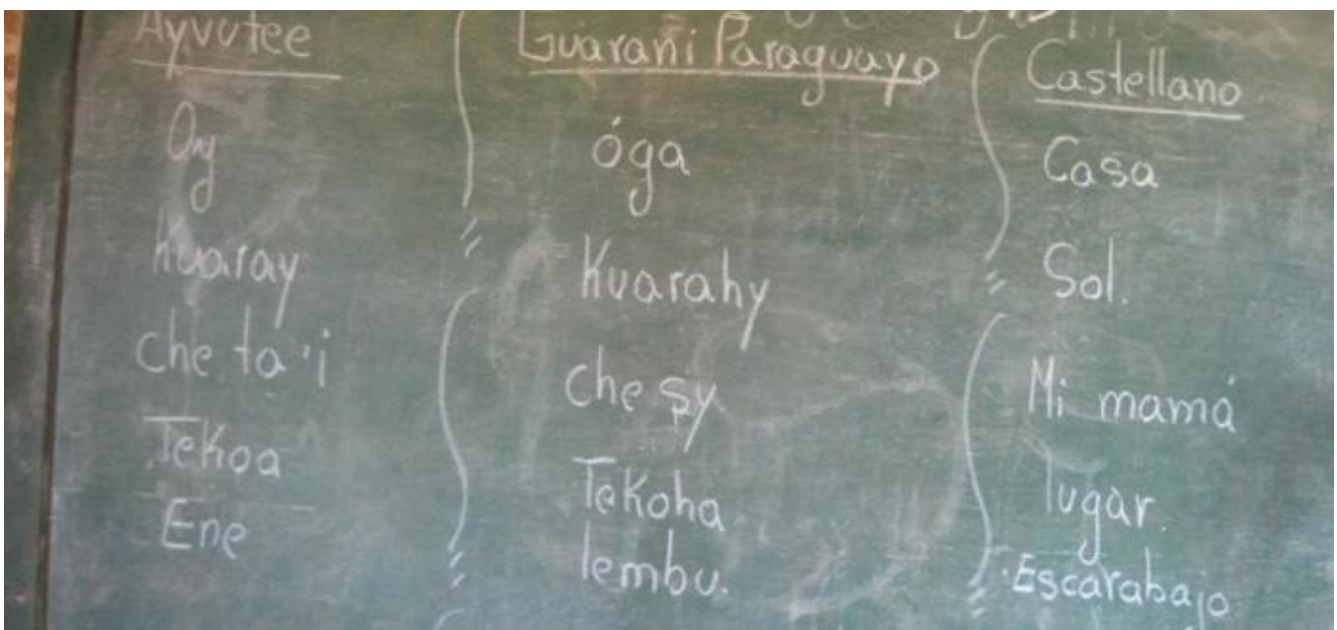 Ayvutee Guarani Paraguayo Castellano
Oy óga Casa
Kuaray Kuarahy Sol.
che ta'i che sy Mi mamá
Tekoa Tekoha lugar.
Ene lembu. Escarabajo